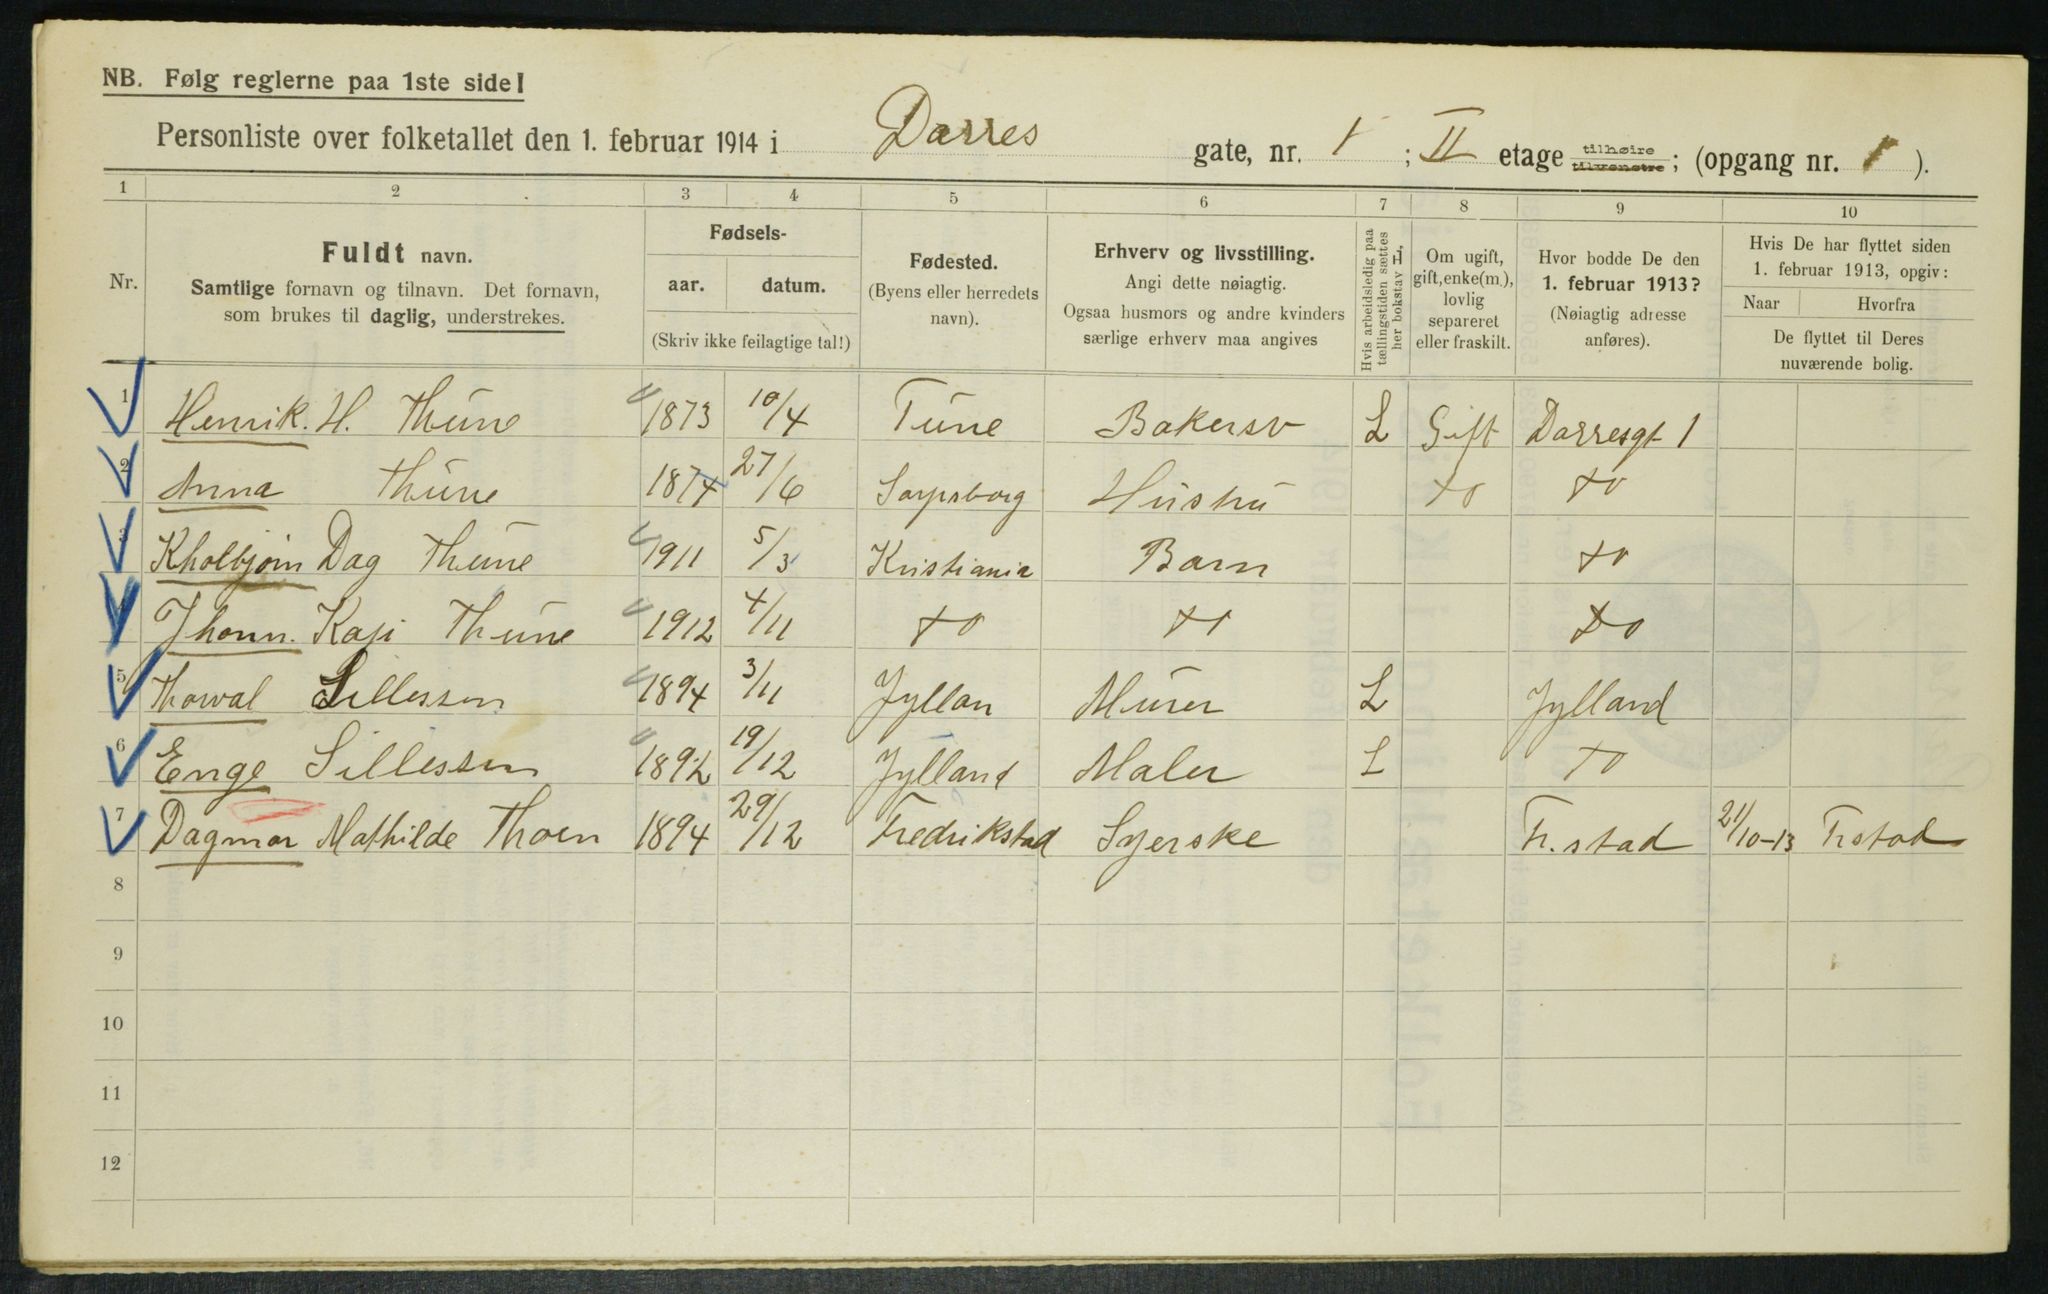 NB. Følg reglerne paa 1ste side!
Personliste over folketallet den 1. februar 1914 i Darres gate, nr. 1 ; II etage tilhøire tilvenstre ; (opgang nr. 1 ).
1 2 3 4 5 6 7 8 9 10
Nr.
Fuldt navn.
Samtlige fornavn og tilnavn. Det fornavn,
som brukes til daglig, understrekes.
Fødsels-
aar. datum.
(Skriv ikke feilagtige tal!)
Fødested.
(Byens eller herredets
navn).
Erhverv og livsstilling.
Angi dette nøiagtig.
Ogsaa husmors og andre kvinders
særlige erhverv maa angives
Hvis arbeidsledig paa
tællingstiden sættes
her bokstav L,
Om ugift,
gift, enke(m.),
lovlig
separeret
eller fraskilt.
Hvor bodde De den
1. februar 1913?
(Nøiagtig adresse
anføres).
Hvis De har flyttet siden
1. februar 1913, opgiv:
Naar Hvorfra
De flyttet til Deres
nuværende bolig.
1 Henrik. H. Thune 1873 10/4 Tune Bakersv L Gift Darresgt 1
2 Anna Thune 1874 27/6 Sarpsborg Hustru do do
3 Kholbjørn Dag Thune 1911 5/3 Kristiania Barn do
4 Thune 1912 4/11 do do do
5 Thorval Sillessen 1894 3/11 Jyllan Murer L Jylland
6 Enge Sillessen 1892 19/12 Jylland Maler L do
7 Dagmar Mathilde Thoen 1894 29/12 Fredrikstad Syerske Fr. stad 21/10-13 Frstad
8
9
10
11
12